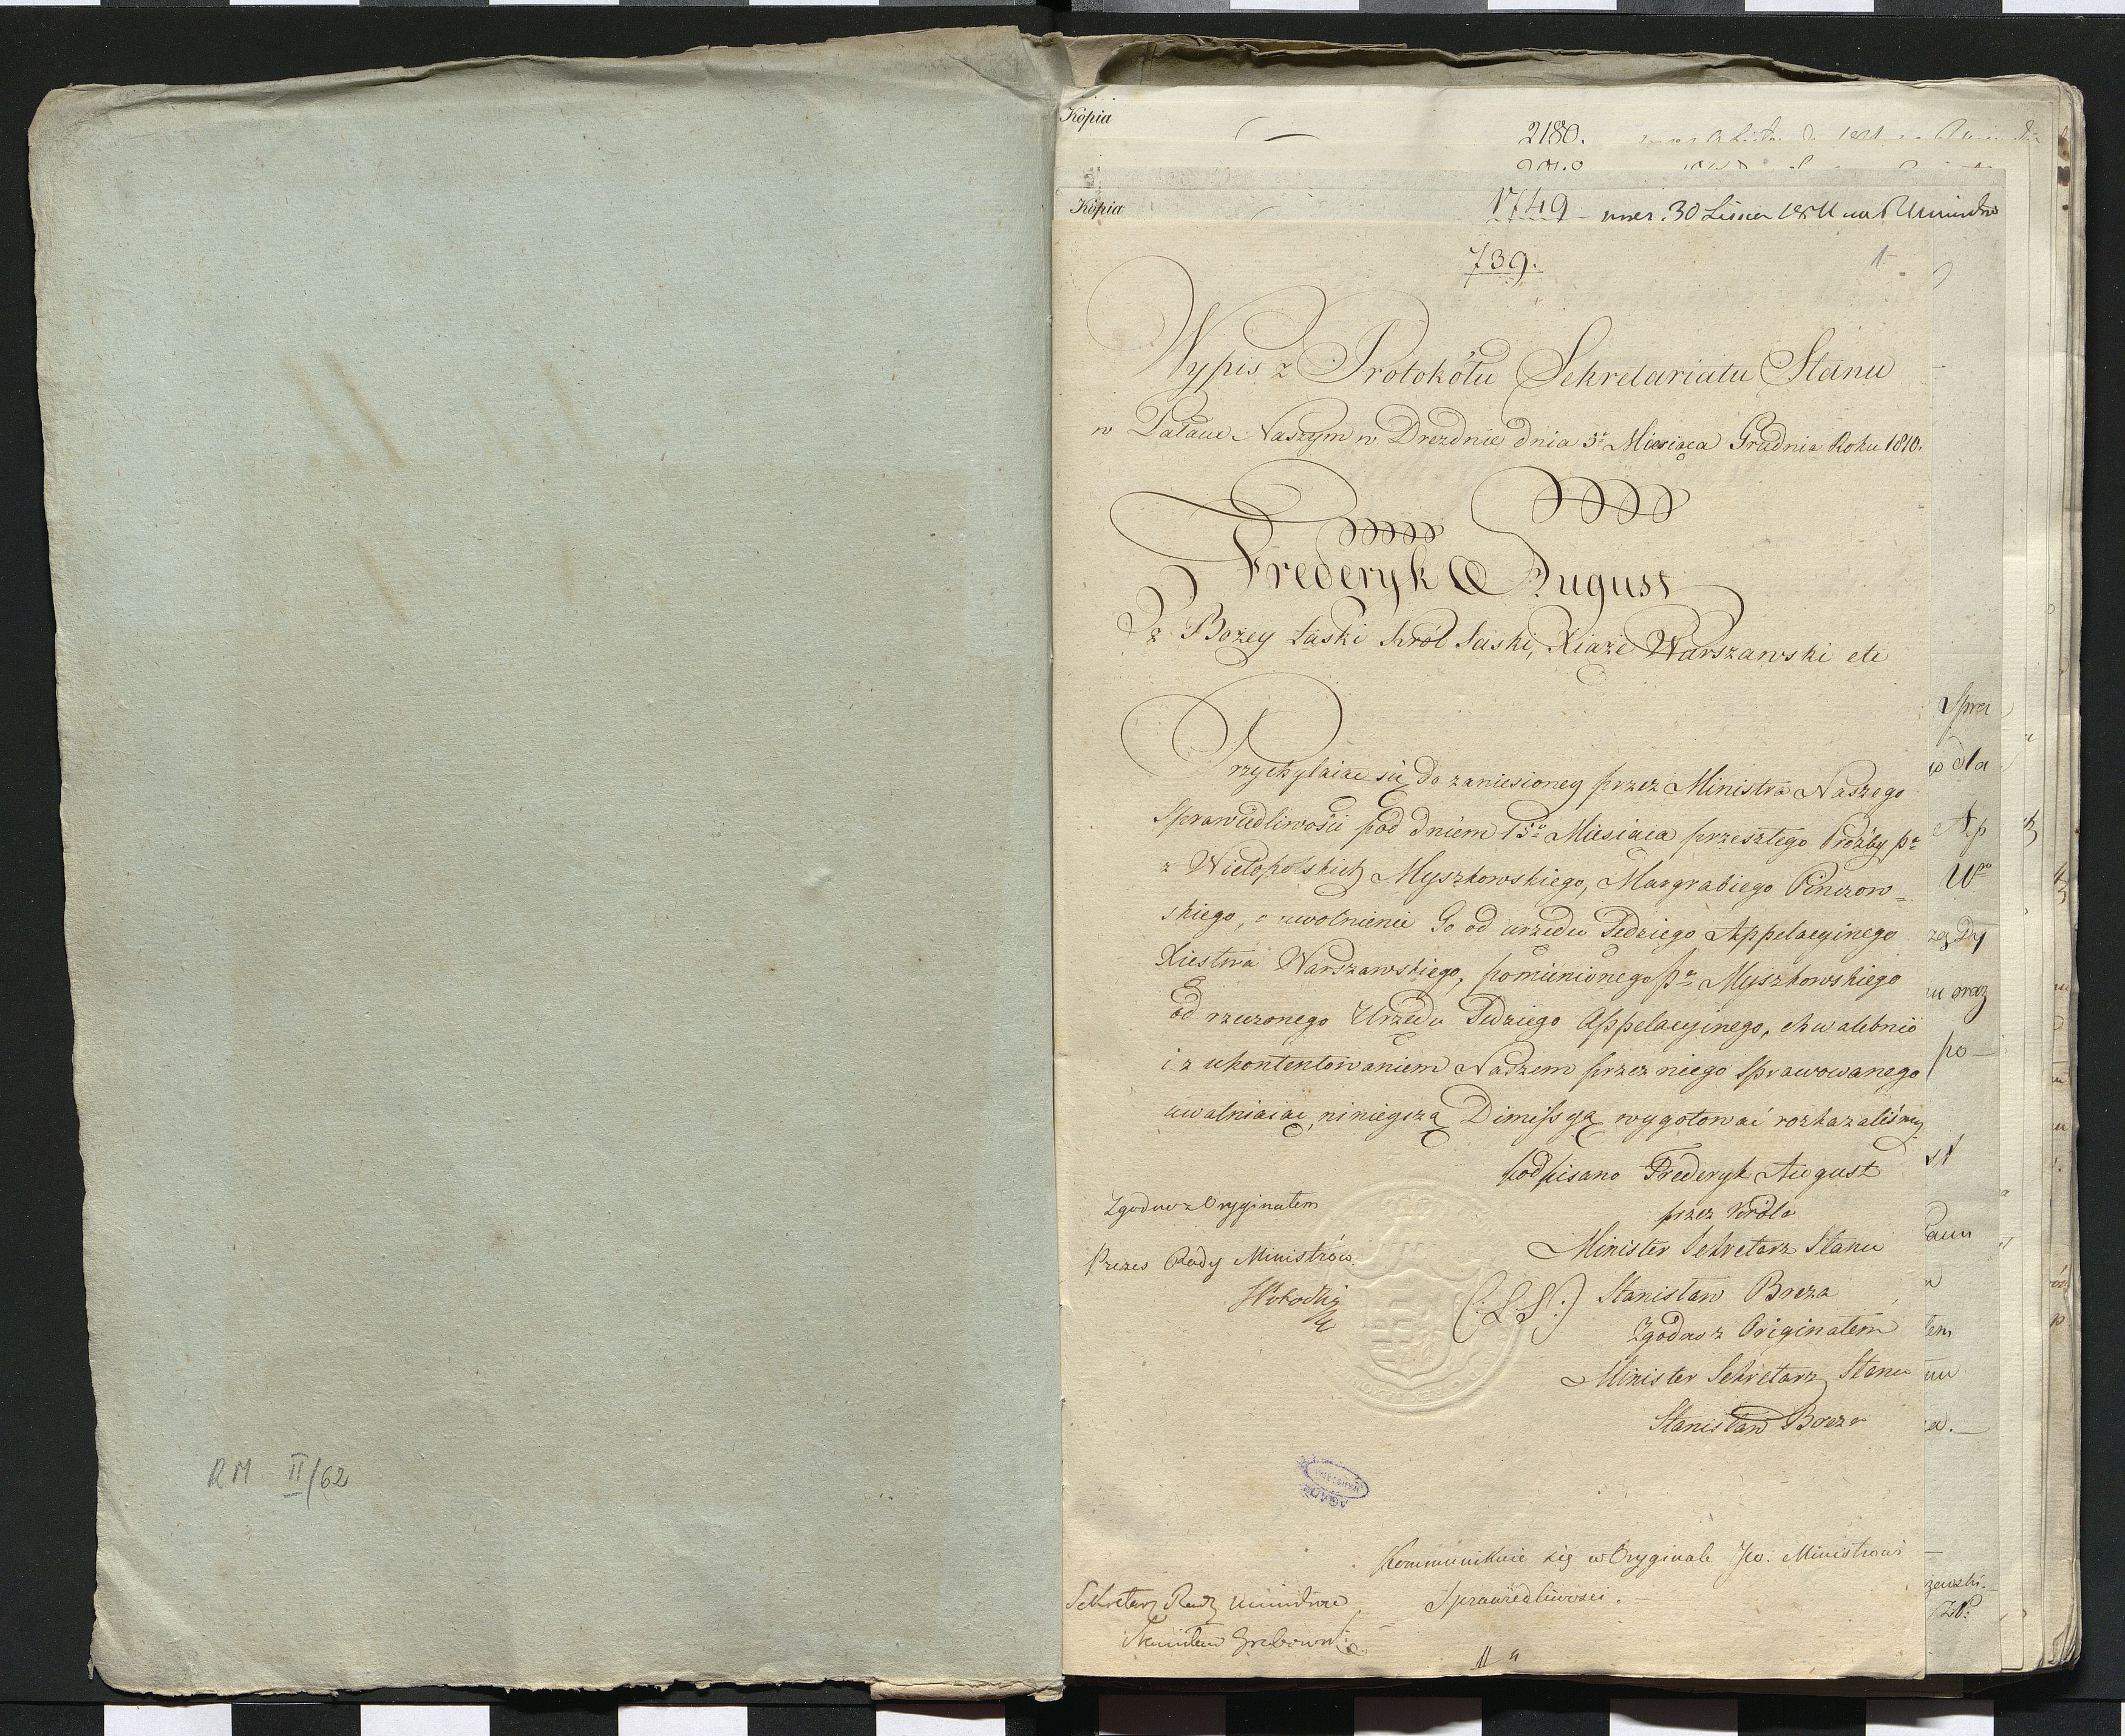 RM II/62
Kópia
2180.
Kópia
1749
739.
1
Wypis z Protokółu Sekretariatu Stanu
w Pałacu Naszym w Dreznie dnia 3º Miesiąca Grudnia Roku 1810.
Frederyk August
Z Bożey Łaski Król Saski, Xiąże Warszawski etc
Przychylaiąc się do zaniesioney przez Ministra Naszego
Sprawiedliwości pod dniem 15º Miesiąca przeszłego Prożby pª
z Wielopolskich Myszkowskiego, Margrabiego Pinczow=
skiego, o uwolnienie Go od urzędu Sędziego Appelacyinego
Xięstwa Warszawskiego, pomienionego pª Myszkowskiego
od rzeczonego Urzędu Sędziego Appelacyinego, chwalebnie
i z ukontentowaniem Naszem przez niego sprawowanego
uwalniaiąc, ninieyszą Dimissyą wygotować rozkazaliśmy
podpisano Frederyk August
przez Króla
Minister Sekretarz Stanu
(:L:S:) Stanisław Breza
Zgodno z Originałem
Minister Sekretarz Stanu
Stanisław Breza
Zgodno z Oryginałem
Prezes Rady Ministrów
Kommunikuie się w Oryginale Jw. Ministrowi
Sprawiedliwości.
Sekretarz Rady Ministrów
Stanisław Grabowski
Spra
dla
Ap
zędy
u oraz
po—